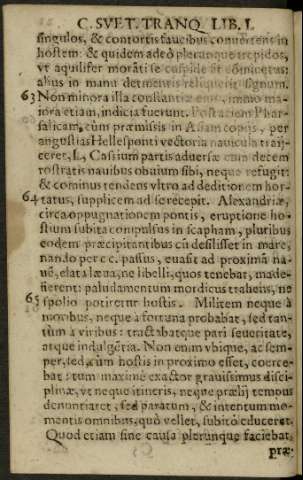 C. SVET. TRANQ. LIB. I.
singulos, & contortis faucibus conuertens in
hostem: & quidem adeò plerunque trepidos,
vt aquilifer morāti se cuspide sit cōminatus:
alius in manu detinentis reliquerit signum.
63 Non minora illa constantiæ eius, immo ma-
iora etiam, indicia fuerunt. Post aciem Phar-
salicam, cùm præmissis in Asiam copijs, per
angustias Hellesponti vectoria nauicula traij-
ceret, L, Cassium partis aduersæ cum decem
rostratis nauibus obuium sibi, neque refugit:
& cominus tendens vltro ad deditionem hor-
64 tatus, supplicem ad se recepit. Alexandriæ,
circa oppugnationem pontis, eruptione ho-
stium subita compulsus in scapham, pluribus
eodem præcipitantibus cū desilisset in mare,
nando per c c. passus, euasit ad proximā na-
uē, elata læua, ne libelli, quos tenebat, made-
fierent: paludamentum mordicus trahens, ne
65 spolio potiretur hostis. Militem neque à
moribus, neque à fortuna probabat, sed tan-
tùm à viribus: tractabatque pari seueritate,
atque indulgētia. Non enim vbique, ac sem-
per, sed, cùm hostis in proximo esset, coerce-
bat: tum maximè exactor grauissimus disci-
plinæ, vt neque itineris, neque prælij tempus
denuntiaret, sed paratum, & intentum mo-
mentis omnibus, quò vellet, subitò educeret.
Quod etiam sine causa plerunque faciebat,
præ-